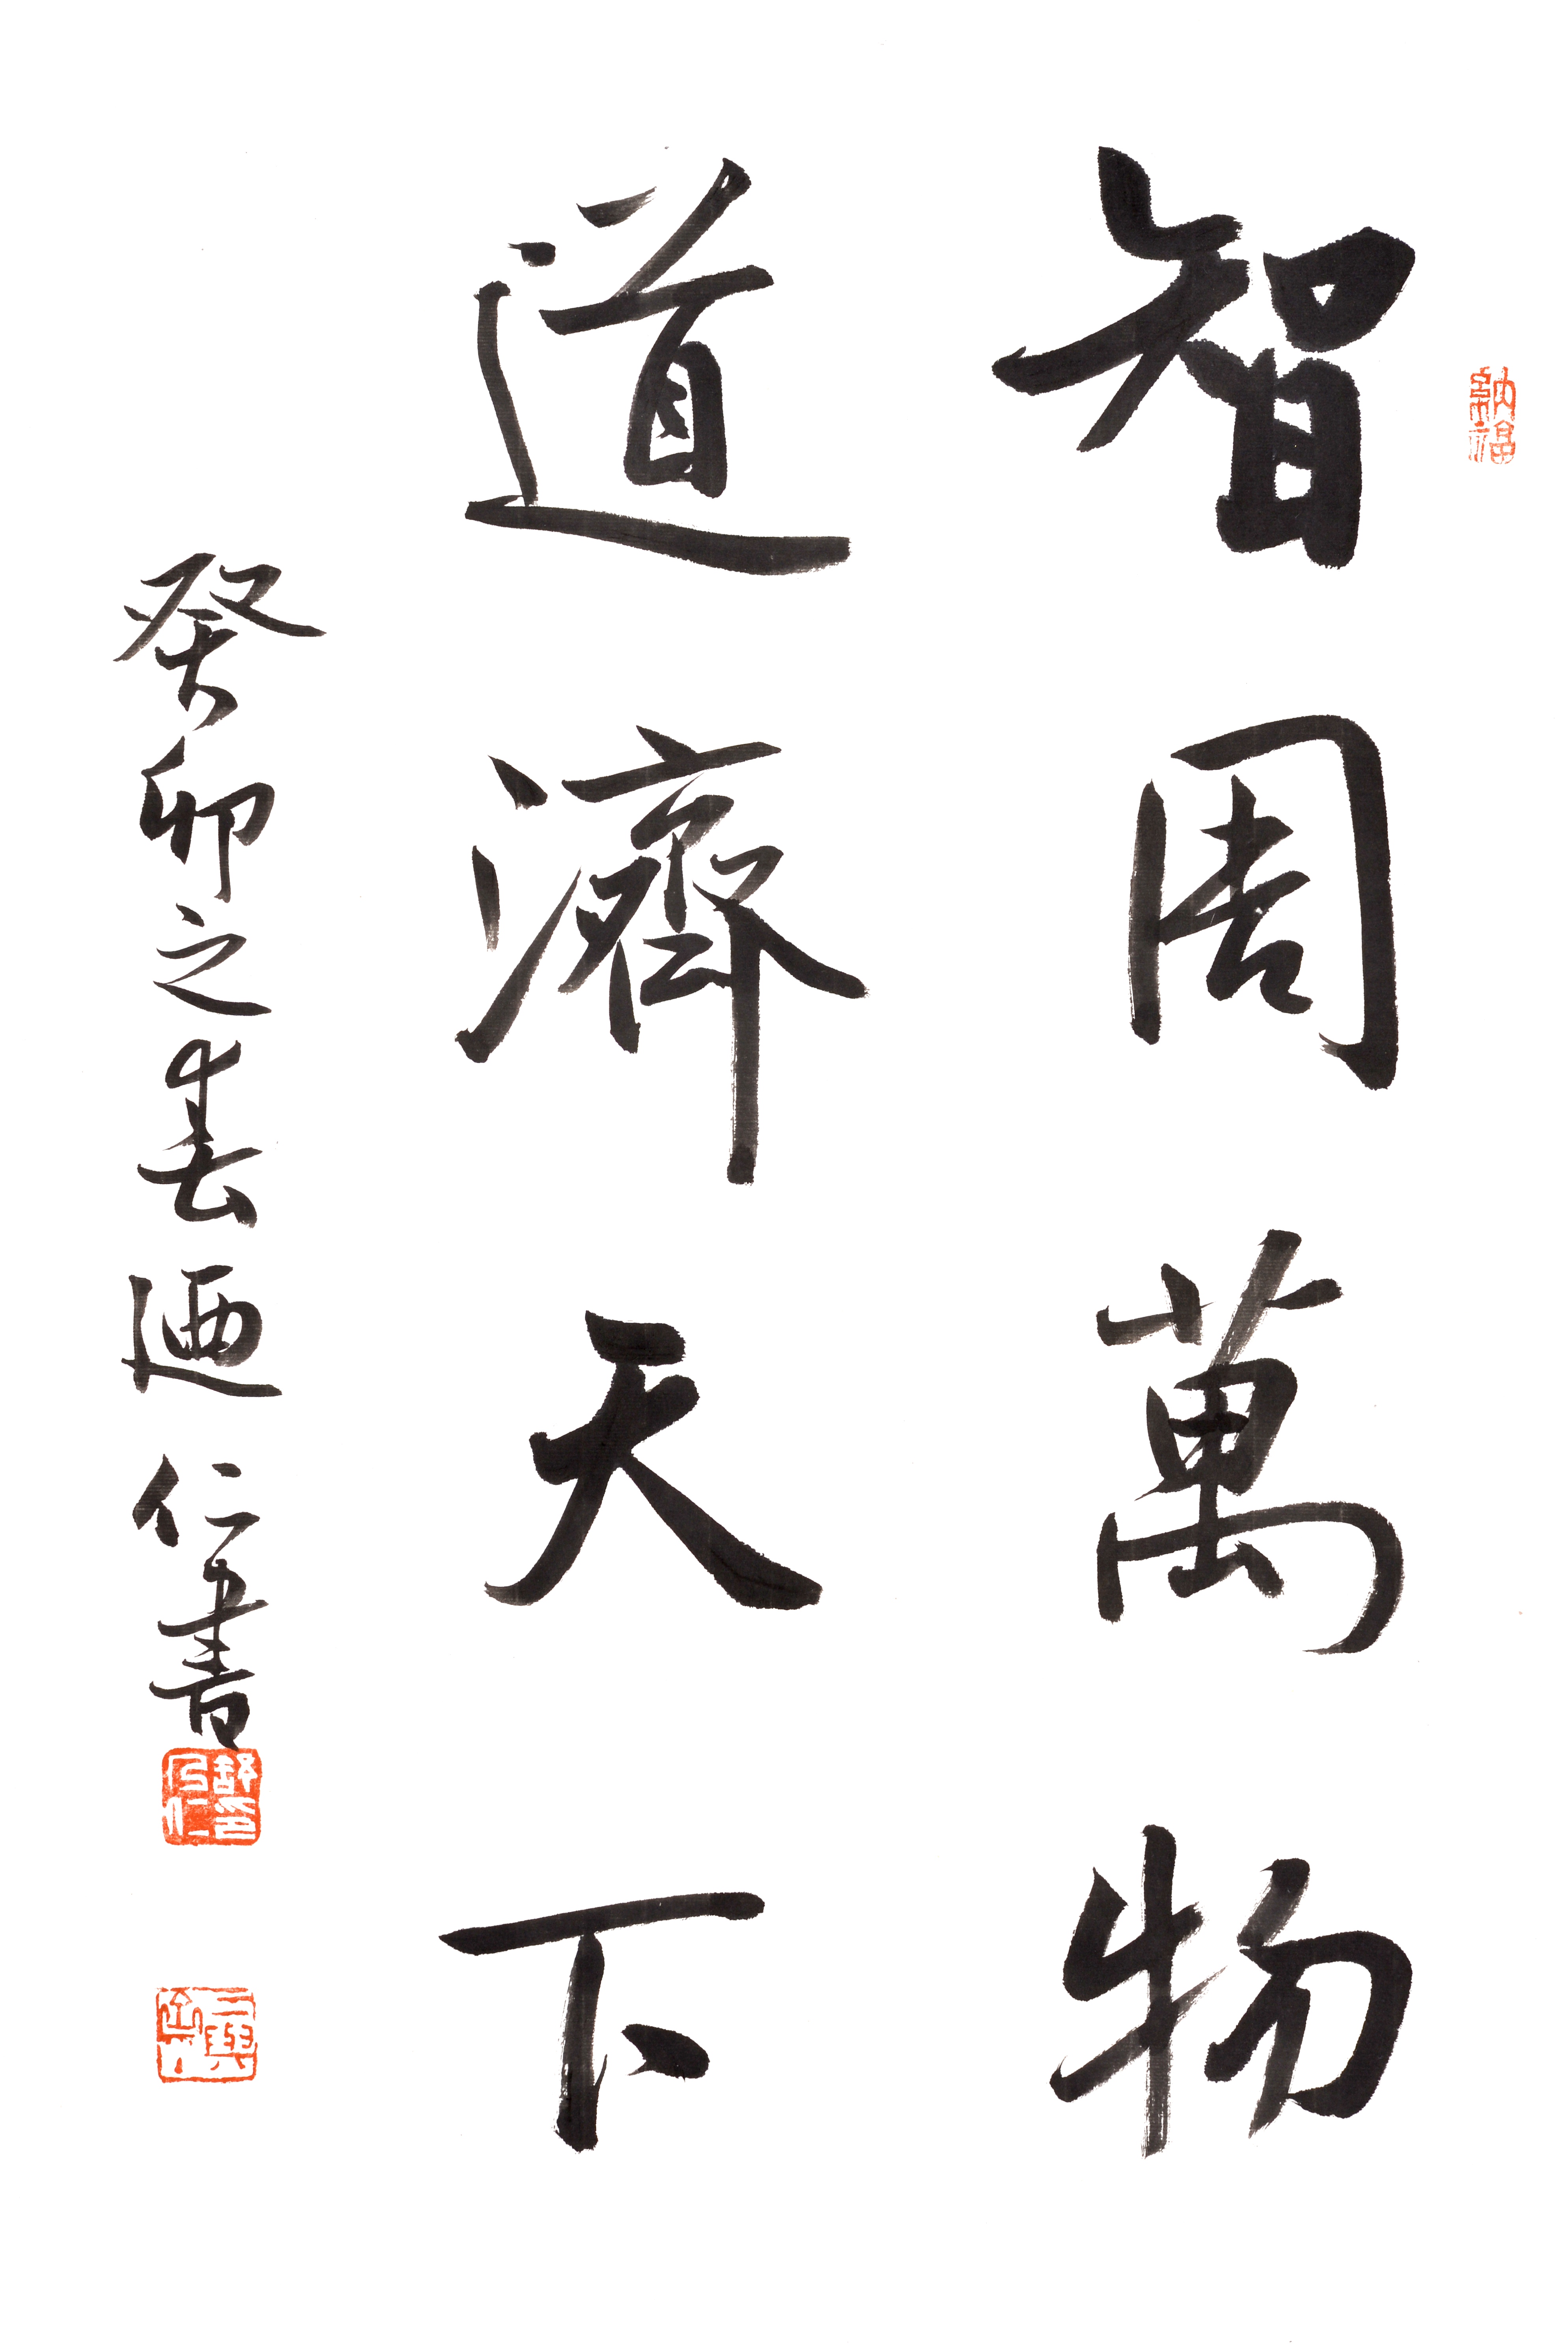 智周萬物
道濟天下
癸卯之春迺仁書
納福
舒印乃仁